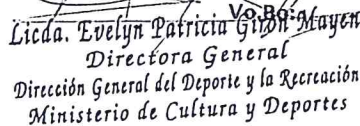 Vo.Bo.
Licda. Evelyn Patricia Girón Mayen
Directora General
Dirección General del Deporte y la Recreación
Ministerio de Cultura y Deportes